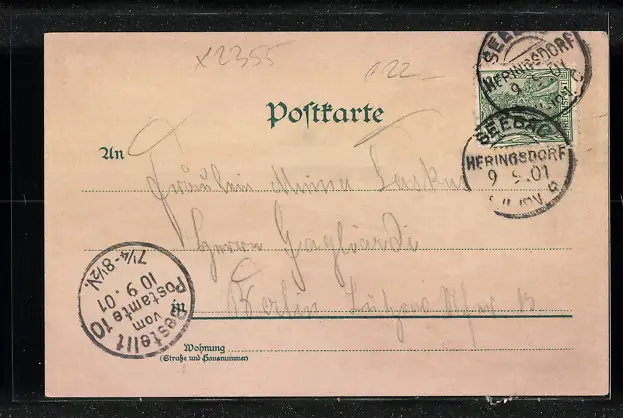 x2355
22
SEEBAD
HERINGSDORF
9
01
Postkarte
SEEBAD
HERINGSDORF
9 9.01
An
Fräulein Minna
Herrn Gagliardi
Bestellt
vom
Postamte 10
10 9. 01
7¼-8½V.
in
Berlin Lützow Ufer
Wohnung
(Straße und Hausnummer)